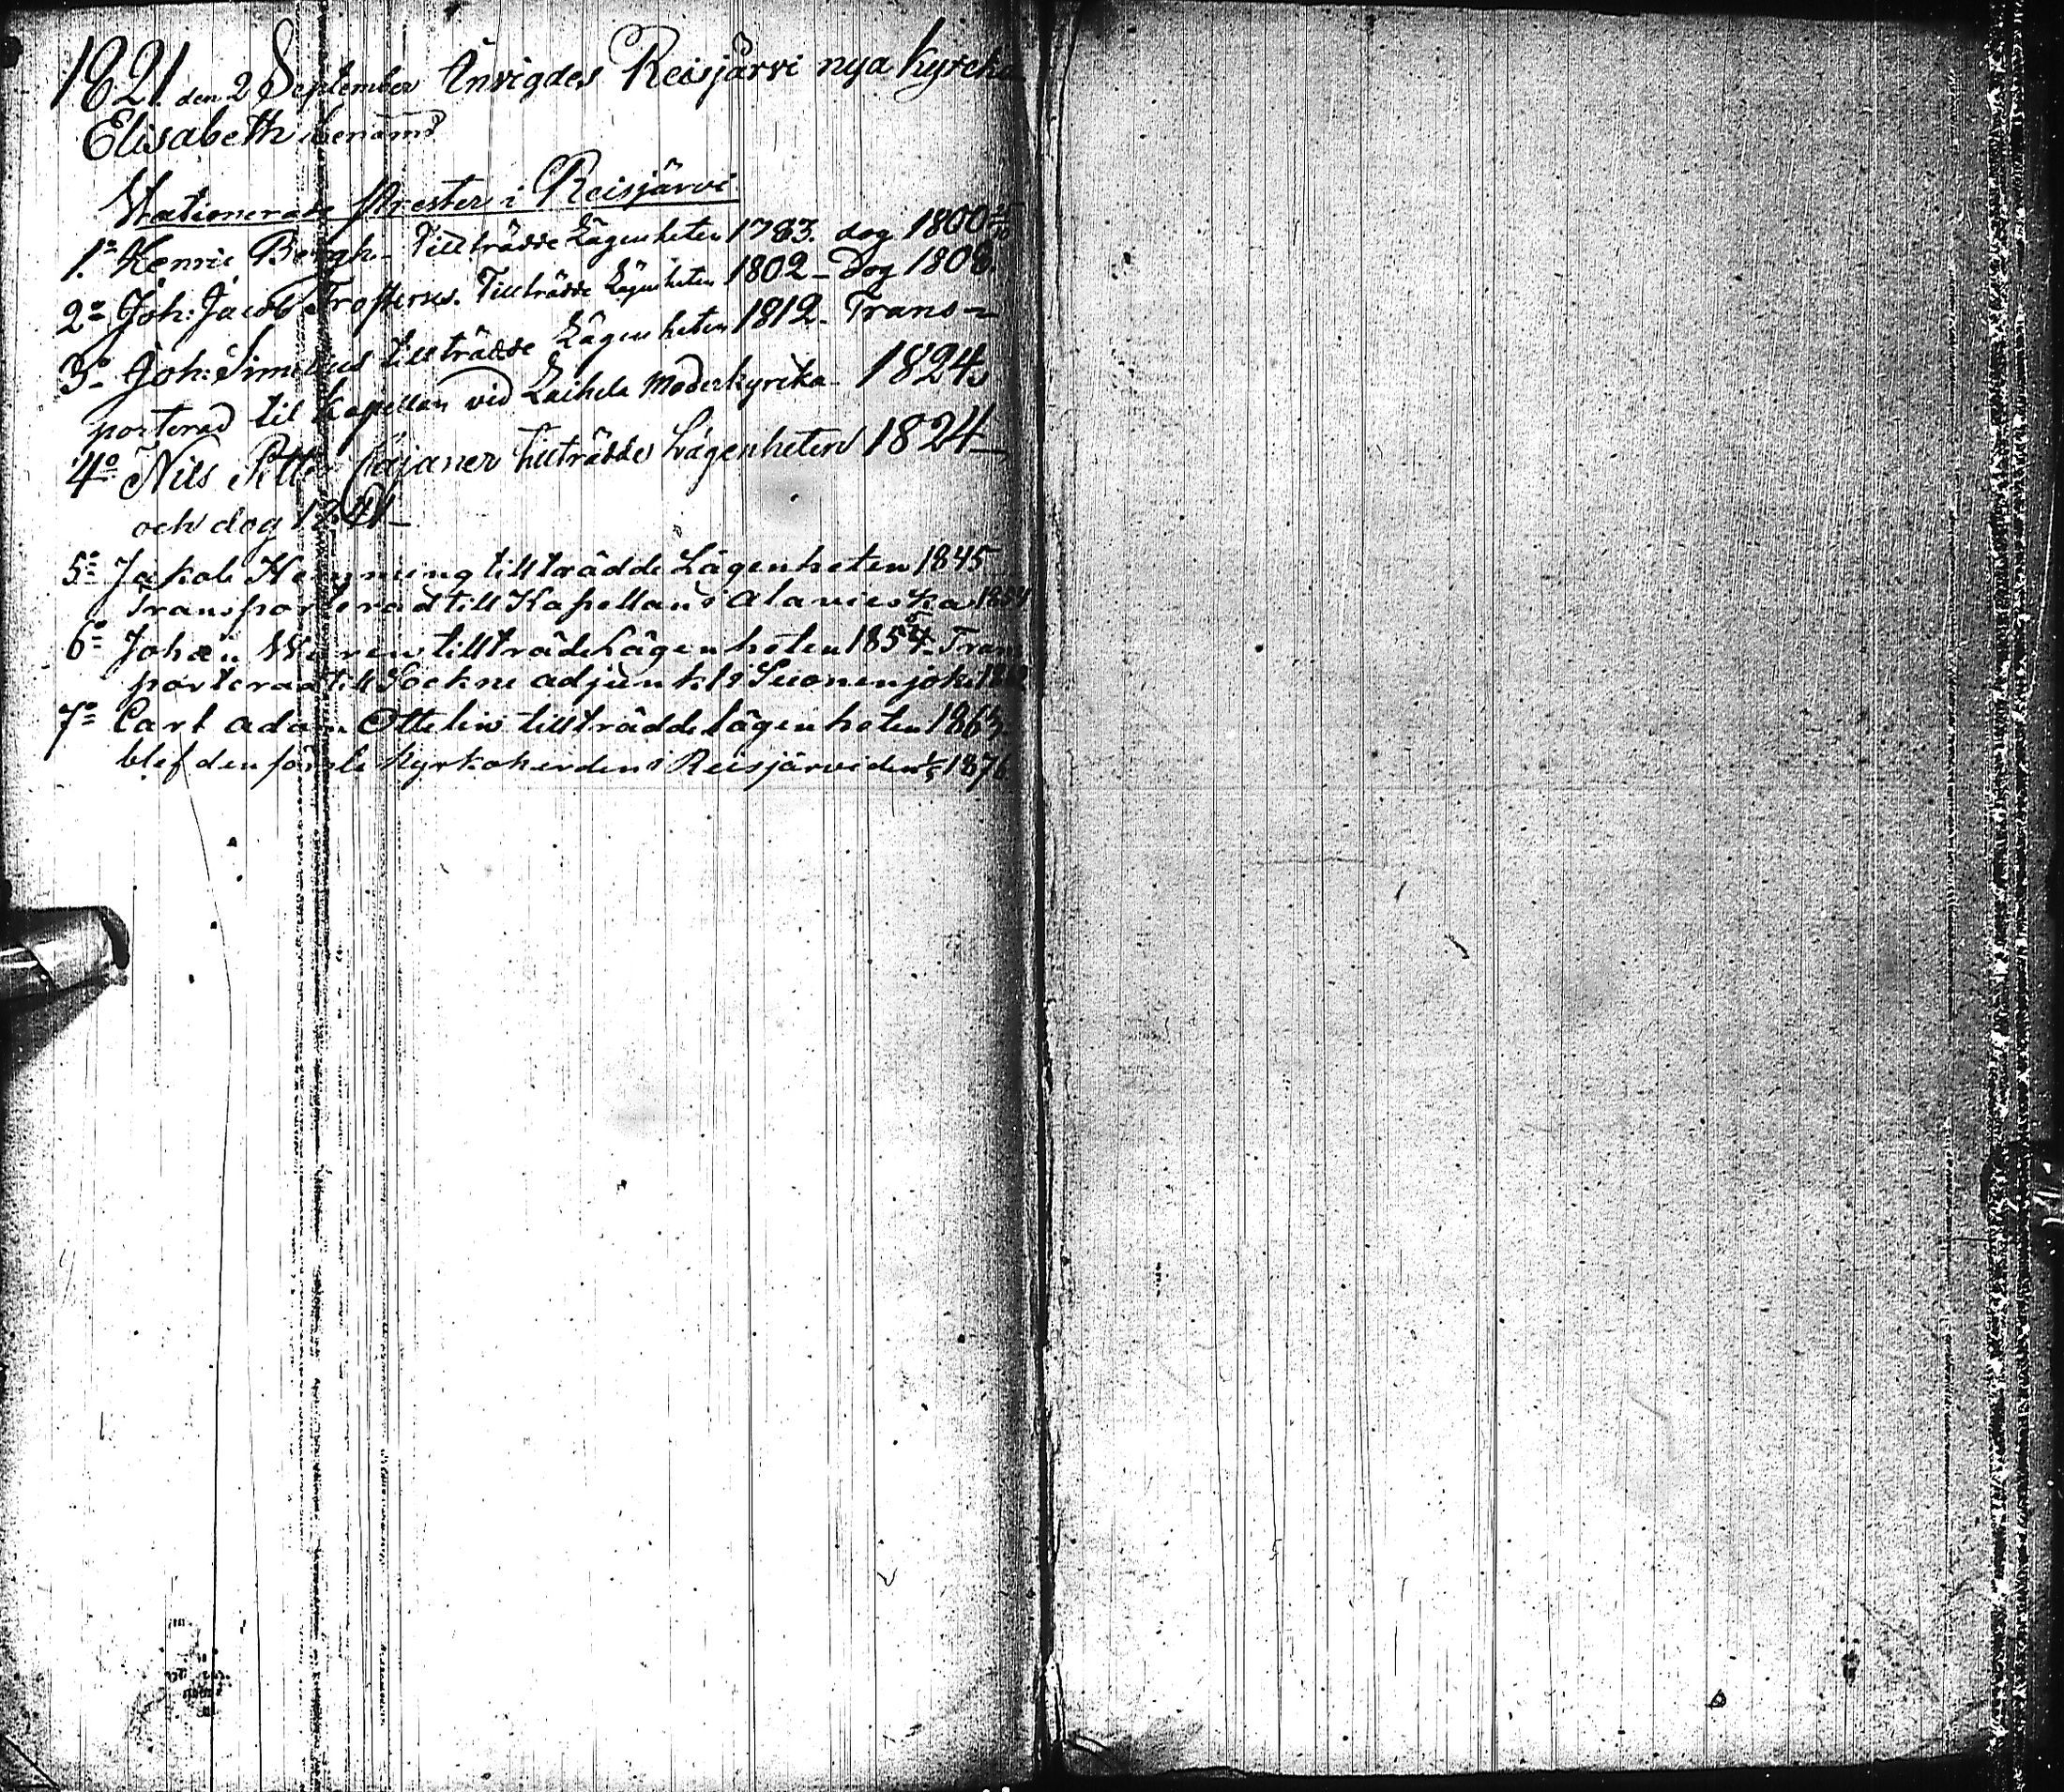 1821. den 2 September Invigdes Reisjärvi nya kyrcka
Elisabeth benämd
Stationerade Prester i Reisjärvi
1º Henric Bergh. Tillträdde Lägenheten 1783. dog 1800
2º Joh: Jacob Frosterus. Tillträdde Lägenheten 1802 - Dog 1808.
3º Joh: Simelius tillträdde Lägenheten 1812 - Trans-
porterad til Kapellan vid Laihela Moderkyrcka 1824
4º Nils Petter Cajaner tillträdde Lägenheten 1824 -
och dog
5º Jakob Hemming tillträdde Lägenheten 1845
Transporterad till Kapellan i Alavieska 1854
6º Johan tillträde Lägenheten 1854 - Trans
porterad till Sockne adjunkt i Suonenjoki
7º Carl Adam Ottelin tillträdde lägenheten 1863.
blef den första Kyrkoherden i Reisjärvi den 1/5 1876